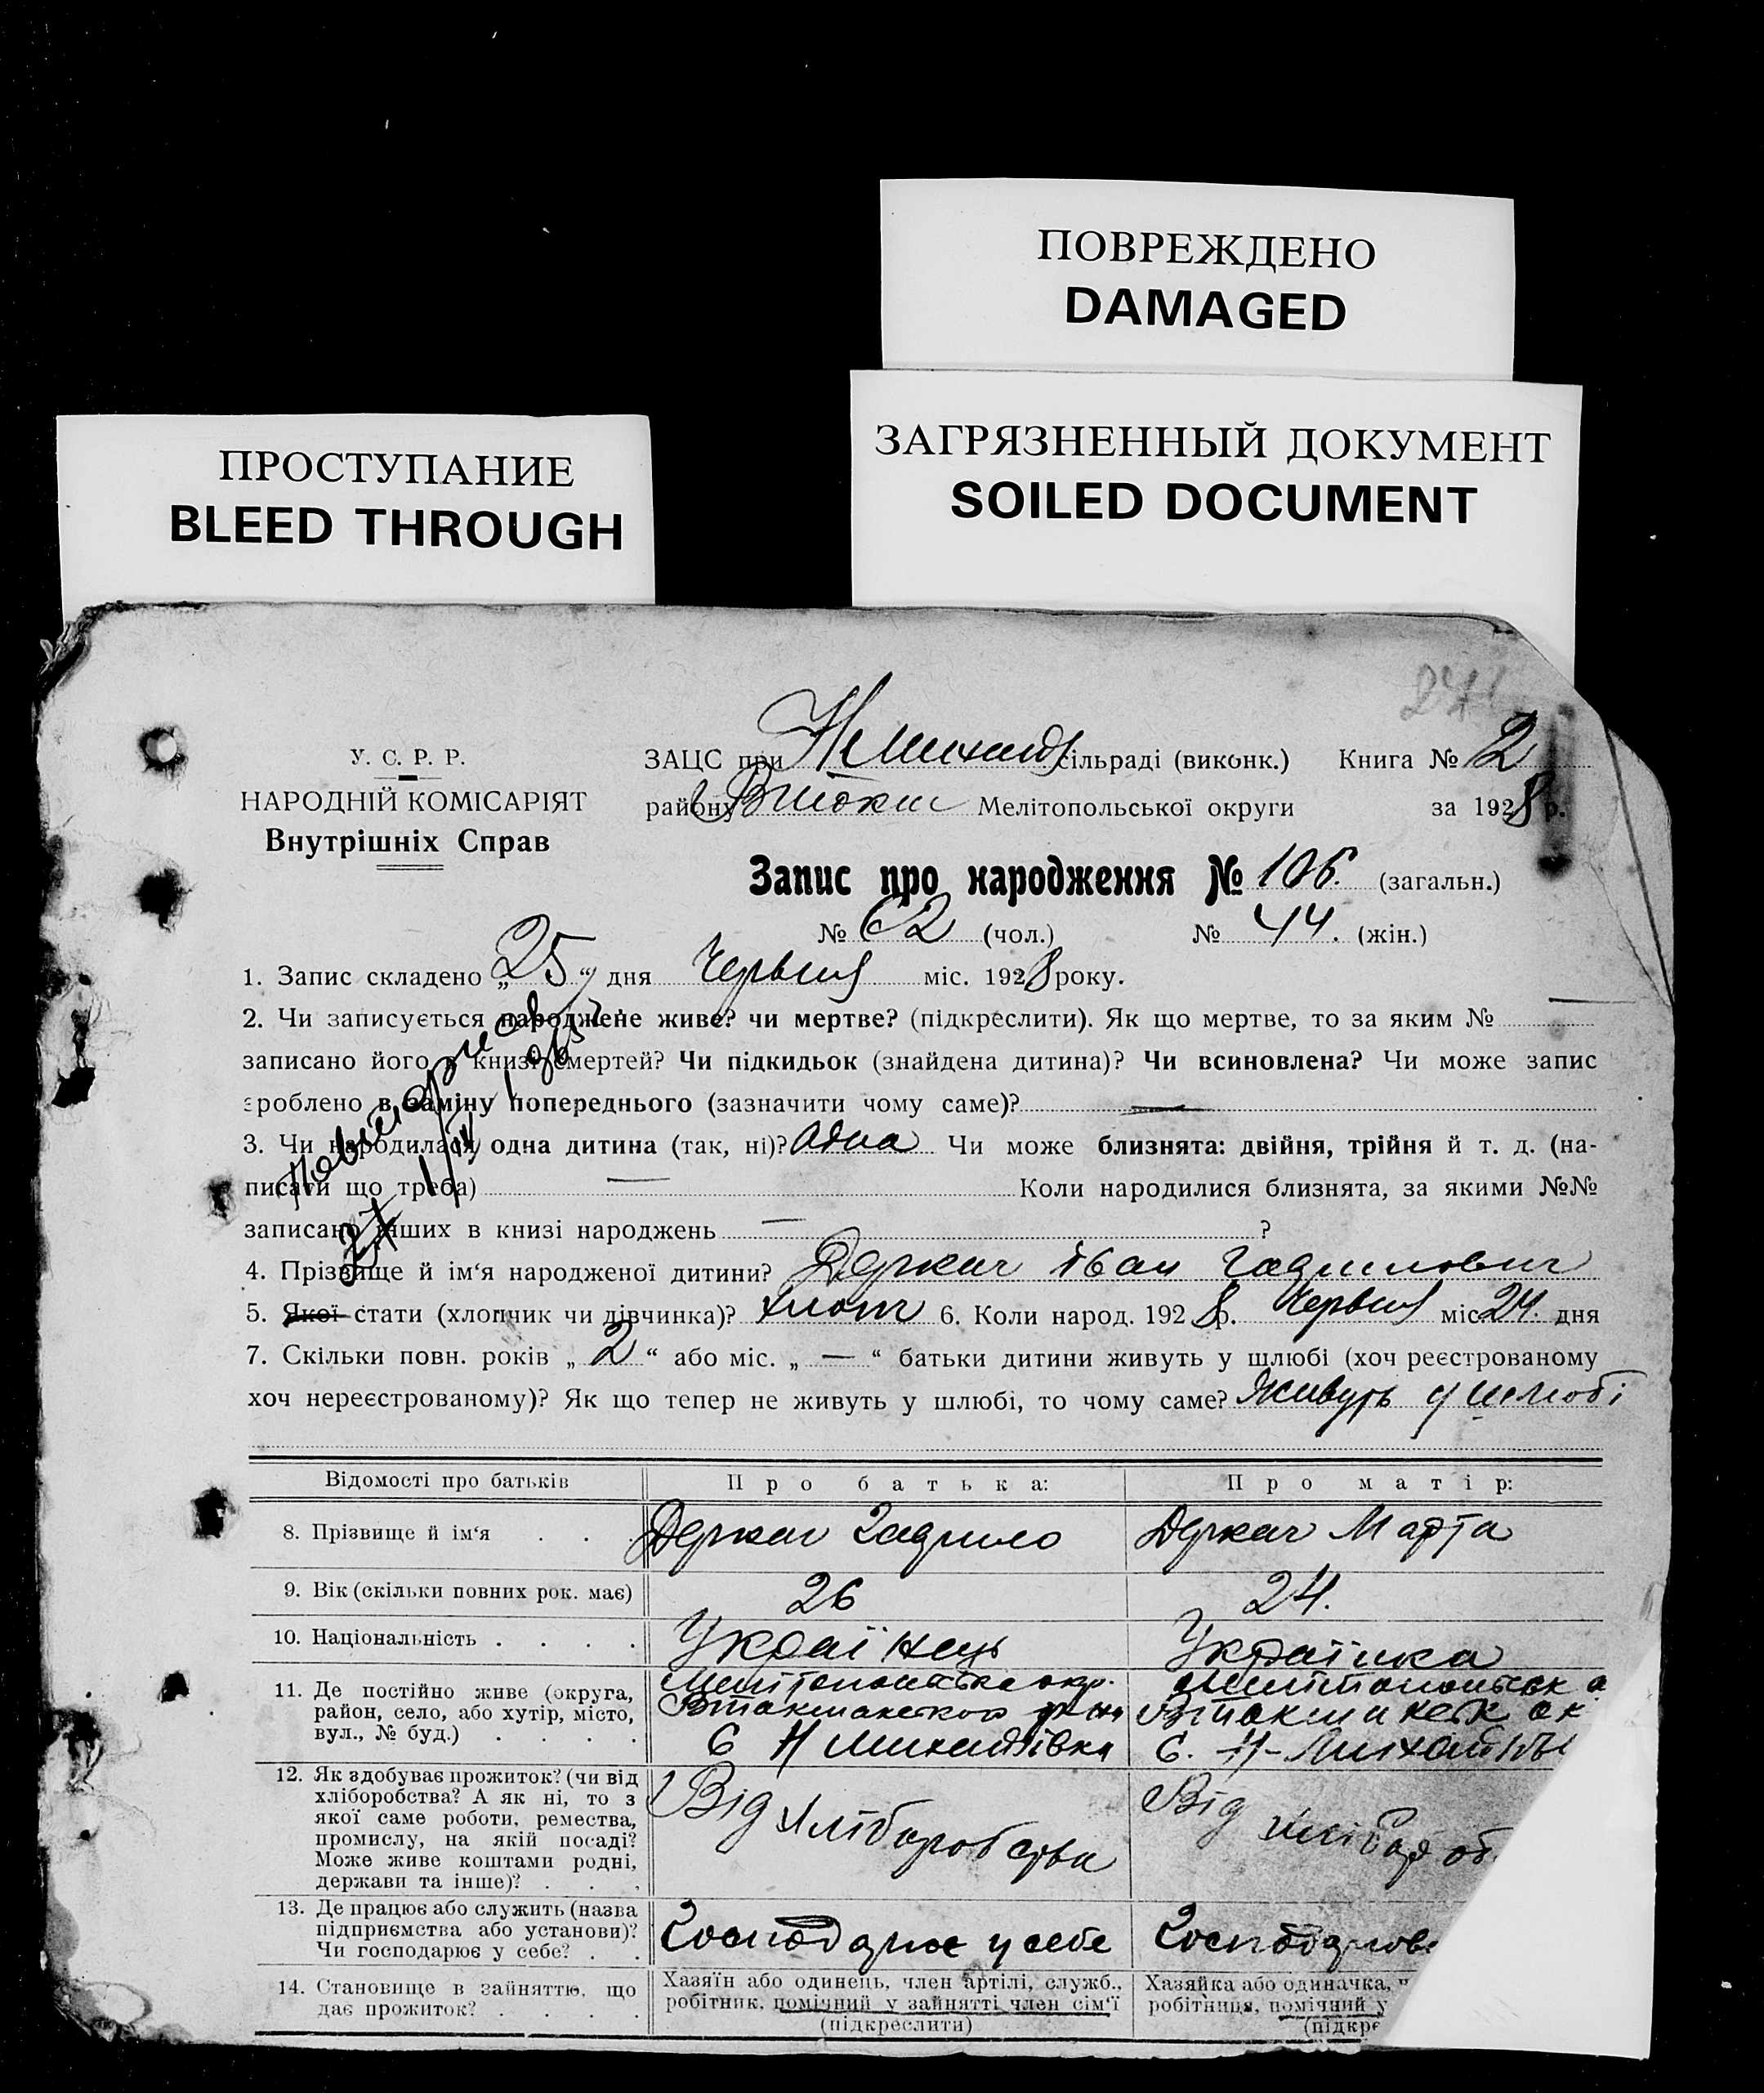 ПОВРЕЖДЕНО
DAMAGED
ЗАГРЯЗНЕННЫЙ ДОКУМЕНТ
SOILED DOCUMENT
ПРОСТУПАНИЕ
BLEED THROUGH
У. С. Р. Р.
НАРОДНІЙ КОМІСАРІЯТ
Внутрішніх Справ
ЗАЦС при сільраді (виконк.) Книга № 2
району Мелітопольської округи за 1928 р.
Запис про народження № 106. (загальн.)
№ 62 (чол.) № 44. (жін.)
1. Запис складено „25“ дня Червня міс. 1928 року.
2. Чи записується народжене живе? чи мертве? (підкреслити). Як що мертве, то за яким №
записано його в книзі смертей? Чи підкидьок (знайдена дитина)? Чи всиновлена? Чи може запис
зроблено в заміну попереднього (зазначити чому саме)? —
3. Чи народилася одна дитина (так, ні)? одна Чи може близнята: двійня, трійня й т. д. (на-
писати що треба) — Коли народилися близнята, за якими №№
записано інших в книзі народжень — ?
4. Прізвище й ім‘я народженої дитини? Деркач Іван Гаврилович
5. Якої стати (хлопчик чи дівчинка)? хлопч 6. Коли народ. 1928 р. Червня міс 24. дня
7. Скільки повн. років „ 2 “ або міс. „ — “ батьки дитини живуть у шлюбі (хоч реєстрованому
хоч нереєстрованому)? Як що тепер не живуть у шлюбі, то чому саме? Живуть у шлюбі
Відомості про батьків Про батька: Про матір:
8. Прізвище й ім‘я . . . Деркач Гаврило Деркач Марта
9. Вік (скільки повних рок. має) 26 24.
10. Національність . . . . Українець Українка
11. Де постійно живе (округа,
район, село, або хутір, місто,
вул., № буд.) . . . .
Мелітопольська окр.
С Н Михайлівка
12. Як здобуває прожиток? (чи від
хліборобства? А як ні, то з
якої саме роботи, ремества,
промислу, на якій посаді?
Може живе коштами родні,
держави та інше)? . . .
Від хліборобства
Від
13. Де працює або служить (назва
підприємства або установи)?
Чи господарює у себе? . .
Господарює у себе
14. Становище в зайняттю, що
дає прожиток? . . . .
Хазяїн або одинець, член артілі, служб.,
робітник, помічний у зайнятті член сім‘ї
(підкреслити)
Хазяйка або одиначка,
робітниця, помічний у
(підкре